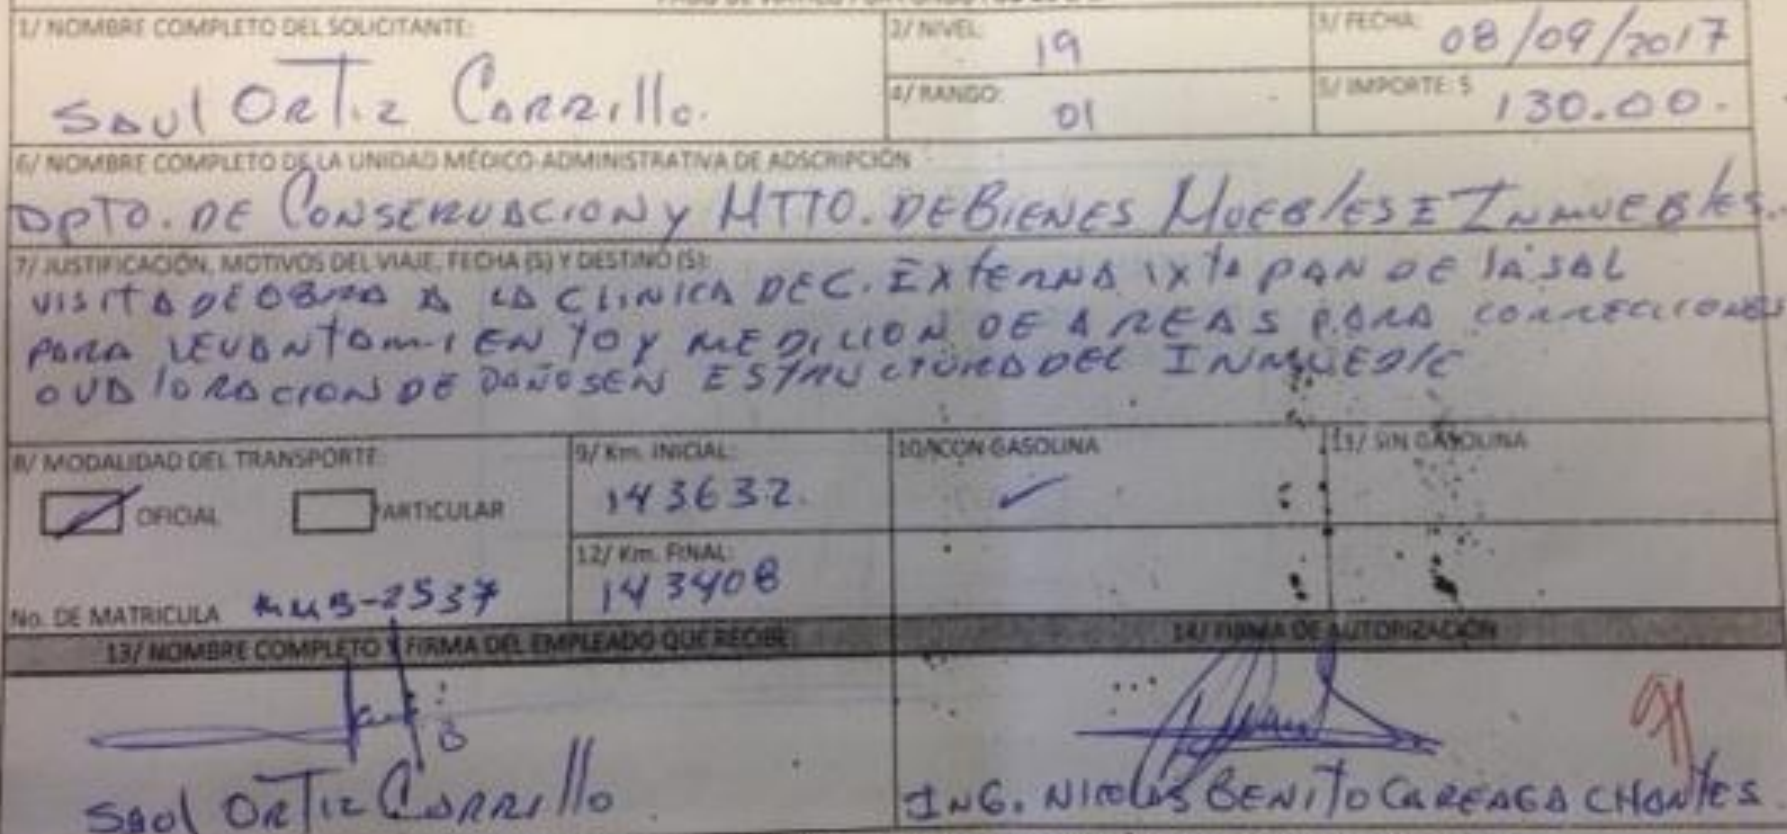 1/ NOMBRE COMPLETO DEL SOLICITANTE:
SAUL ORTIZ CARRILLO.
2/ NIVEL:
19
3/ FECHA:
08/09/2017
4/ RANGO:
01
5/ IMPORTE: $
130.00.
6/ NOMBRE COMPLETO DE LA UNIDAD MÉDICO-ADMINISTRATIVA DE ADSCRIPCIÓN
DPTO. DE CONSERVACION Y MTTO. DE BIENES MUEBLES E INMUEBLES.
7/ JUSTIFICACIÓN, MOTIVOS DEL VIAJE, FECHA (S) Y DESTINO (S):
VISITA DE OBRA A LA CLINICA DE C. EXTERNA IXTAPAN DE LA SAL
PARA LEVANTAMIENTO Y MEDICION DE AREAS PARA CORRECCIONES
O VALORACION DE DAÑOS EN ESTRUCTURA DEL INMUEBLE
8/ MODALIDAD DEL TRANSPORTE:
OFICIAL
PARTICULAR
No. DE MATRICULA
2537
9/ Km. INICIAL:
143632.
10/ CON GASOLINA
✓
11/ SIN GASOLINA
12/ Km. FINAL:
143408
13/ NOMBRE COMPLETO Y FIRMA DEL EMPLEADO QUE RECIBE:
SAUL ORTIZ CARRILLO
14/ FIRMA DE AUTORIZACIÓN
ING. NICOLAS BENITO CAREAGA CHANTES